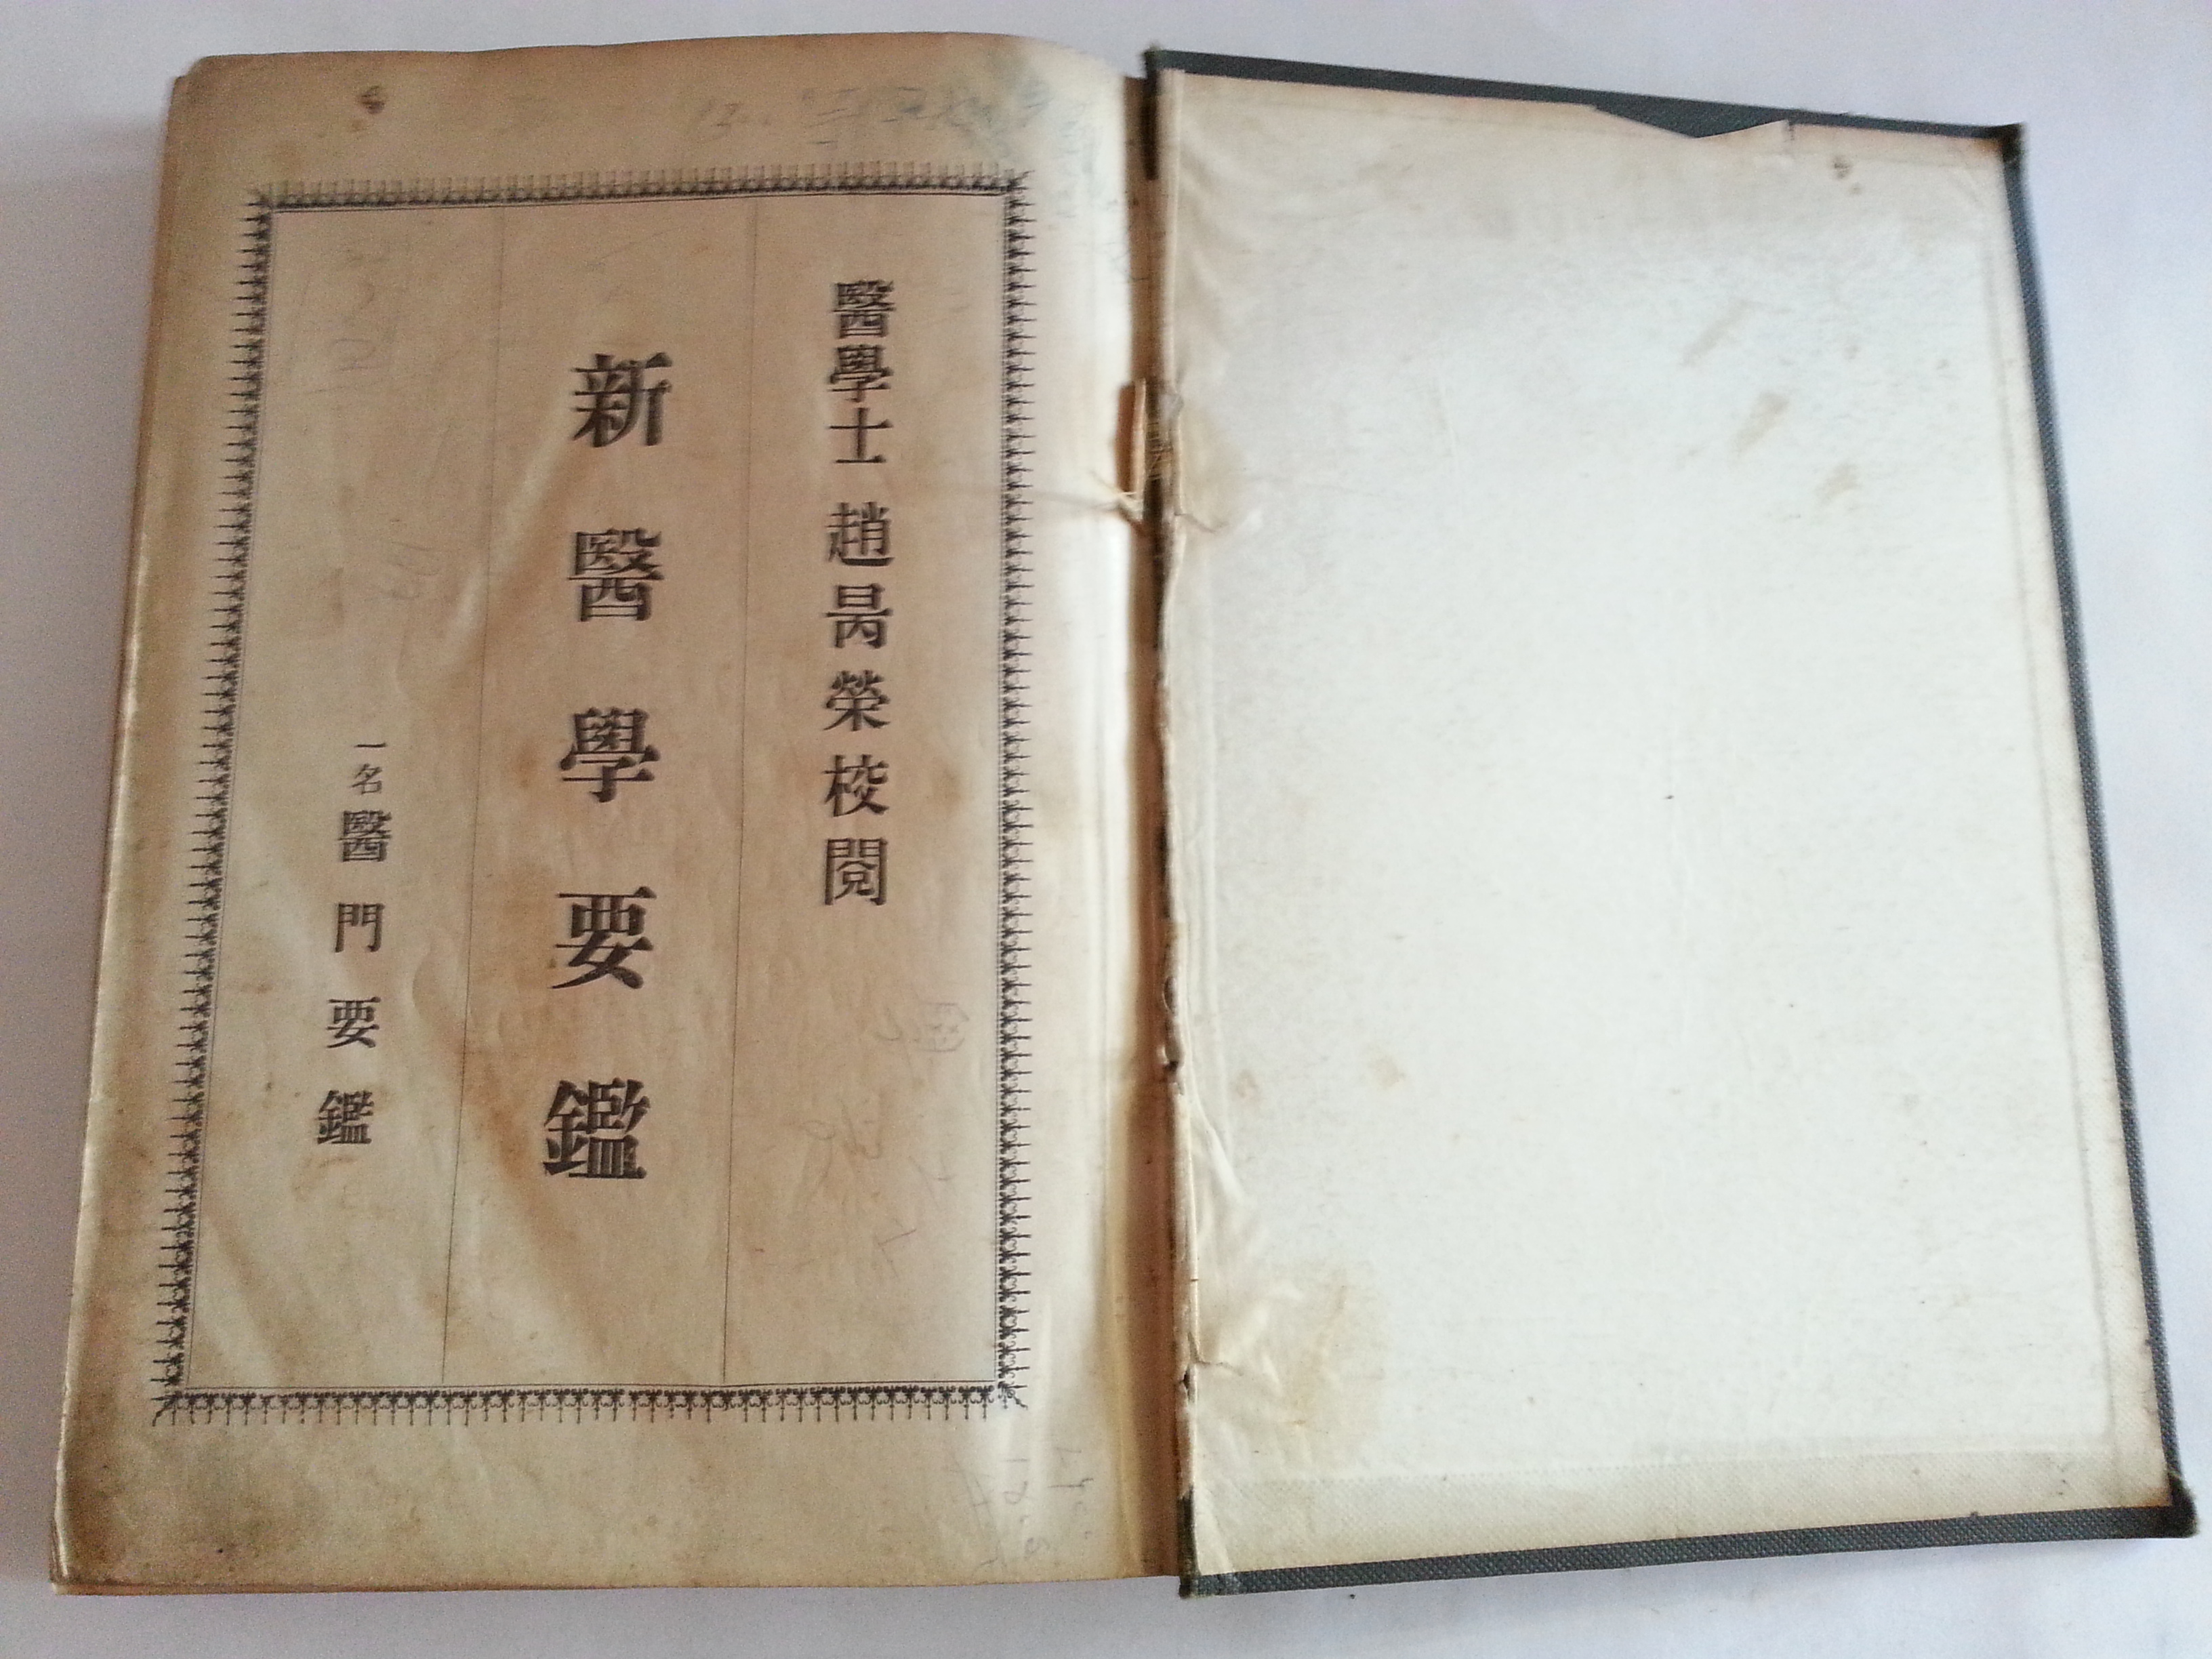 醫學士 趙昺榮校閱
新醫學要鑑
一名醫門要鑑